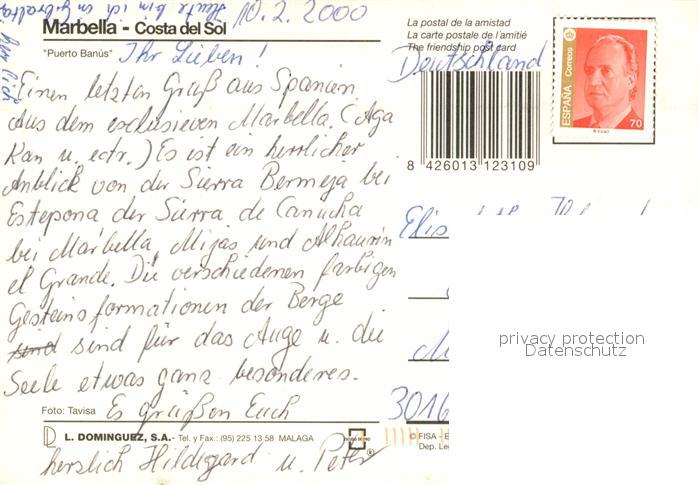 Heute bin ich in Gibraltar
10.2.2000
Marbella - Costa del Sol
"Puerto Banús"
Ihr Lieben!
Einen letzten Gruß aus Spanien
Aus dem exclusieven Marbella. (Aga
Kan u. ectr.) Es ist ein herrlicher
Anblick von der Sierra Bermeja bei
Estepona der Sierra de Canucha
bei Marbella, Mijas und Alhaurin
el Grande. Die verschiedenen farbigen
Gesteinsformationen der Berge
sind sind für das Auge u. die
Seele etwas ganz besonderes.
Foto: Tavisa
Es grüßen Euch
L. DOMINGUEZ, S.A. - Tel. y Fax.: (95) 225 13 58 MALAGA
herzlich Hildegard u. Peter
La postal de la amistad
La carte postale de l'amitié
The friendship post card
Deutschland
8 426013 123109
ESPAÑA Correos
70
3016
© FISA - E
Dep. Le
privacy protection
Datenschutz